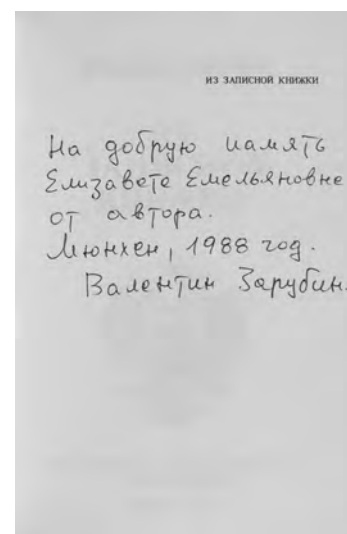 ИЗ ЗАПИСНОЙ КНИЖКИ
На добрую память
Елизавете Емельяновне
от автора.
Мюнхен, 1988 год.
Валентин Зарубин.